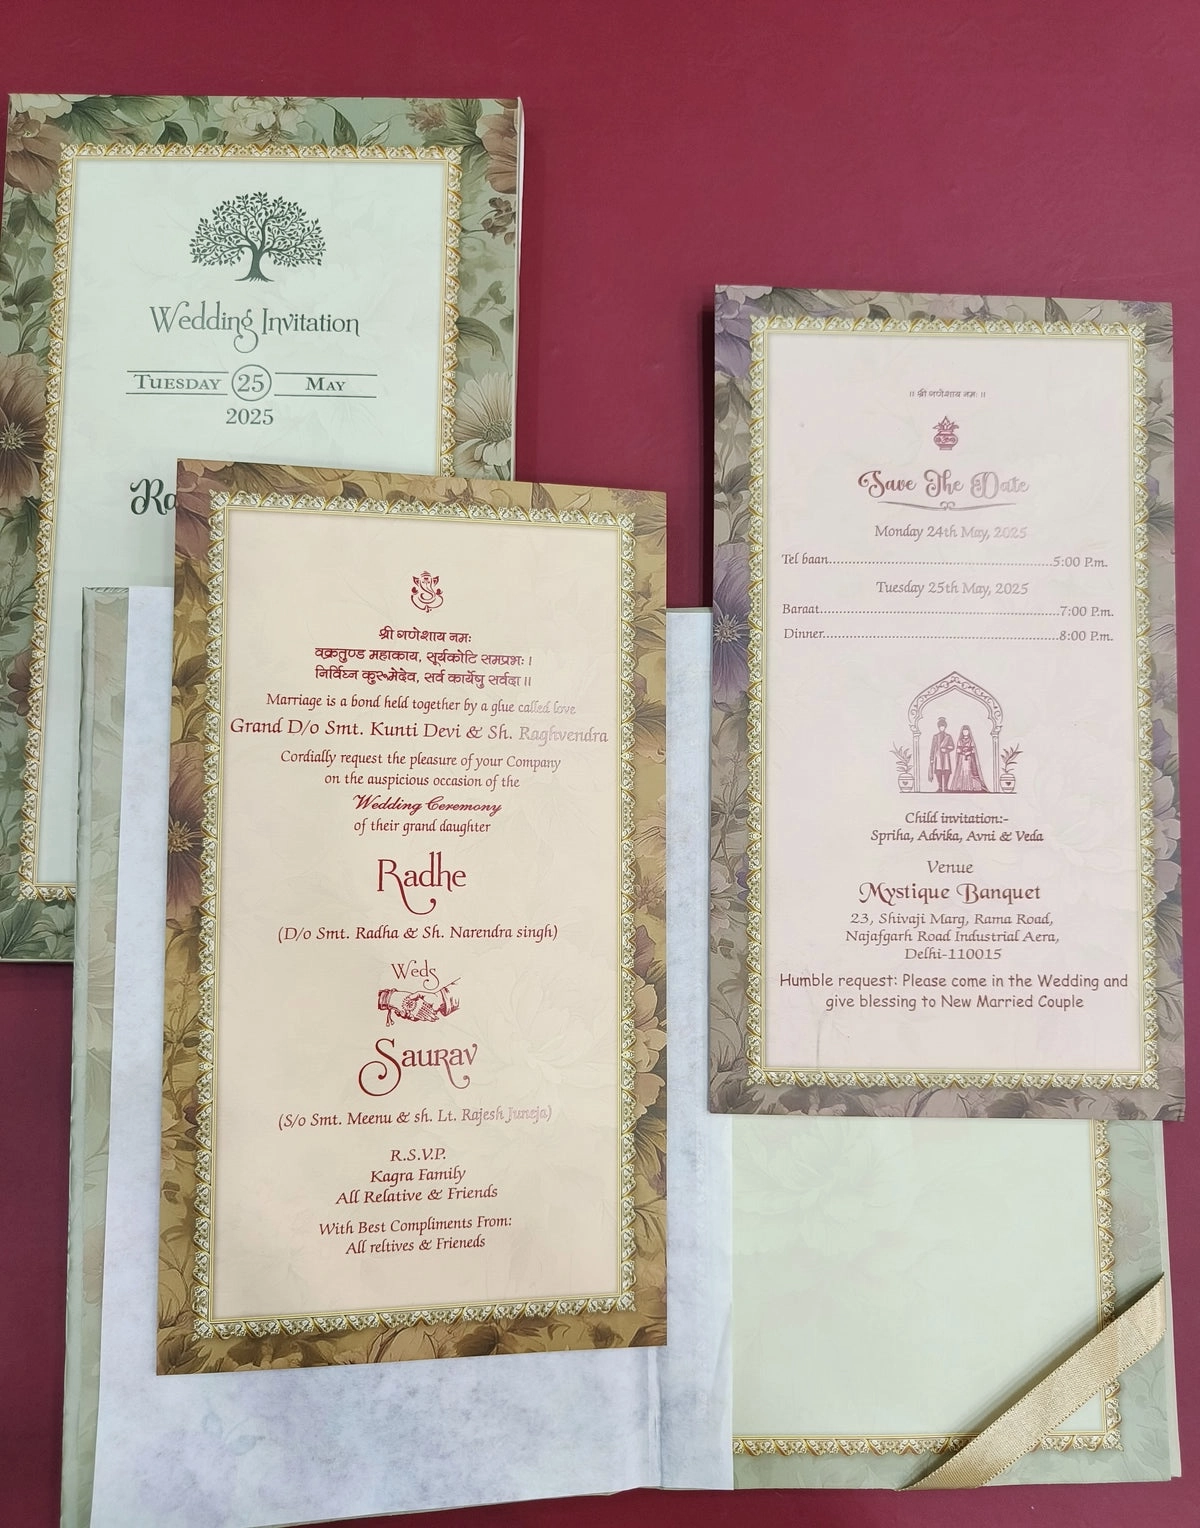 Wedding Invitation
Tuesday 25 May
2025
Ra
श्री गणेशाय नमः
वक्रतुण्ड महाकाय, सूर्यकोटि समप्रभः।
निर्विघ्न कुरूमेदेव, सर्व कार्येषु सर्वदा।।
Marriage is a bond held together by a glue called love
Grand D/o Smt. Kunti Devi & Sh. Raghvendra
Cordially request the pleasure of your Company
on the auspicious occasion of the
Wedding Ceremony
of their grand daughter
Radhe
(D/o Smt. Radha & Sh. Narendra singh)
Weds
Saurav
(S/o Smt. Meenu & sh. Lt. Rajesh Juneja)
R.S.V.P.
Kagra Family
All Relative & Friends
With Best Compliments From:
All reltives & Frieneds
।। श्री गणेशाय नमः ।।
Save The Date
Monday 24th May, 2025
Tel baan.......................................................5:00 P.m.
Tuesday 25th May, 2025
Baraat...........................................................7:00 P.m.
Dinner..........................................................8:00 P.m.
Child invitation:-
Spriha, Advika, Avni & Veda
Venue
Mystique Banquet
23, Shivaji Marg, Rama Road,
Najafgarh Road Industrial Aera,
Delhi-110015
Humble request: Please come in the Wedding and
give blessing to New Married Couple